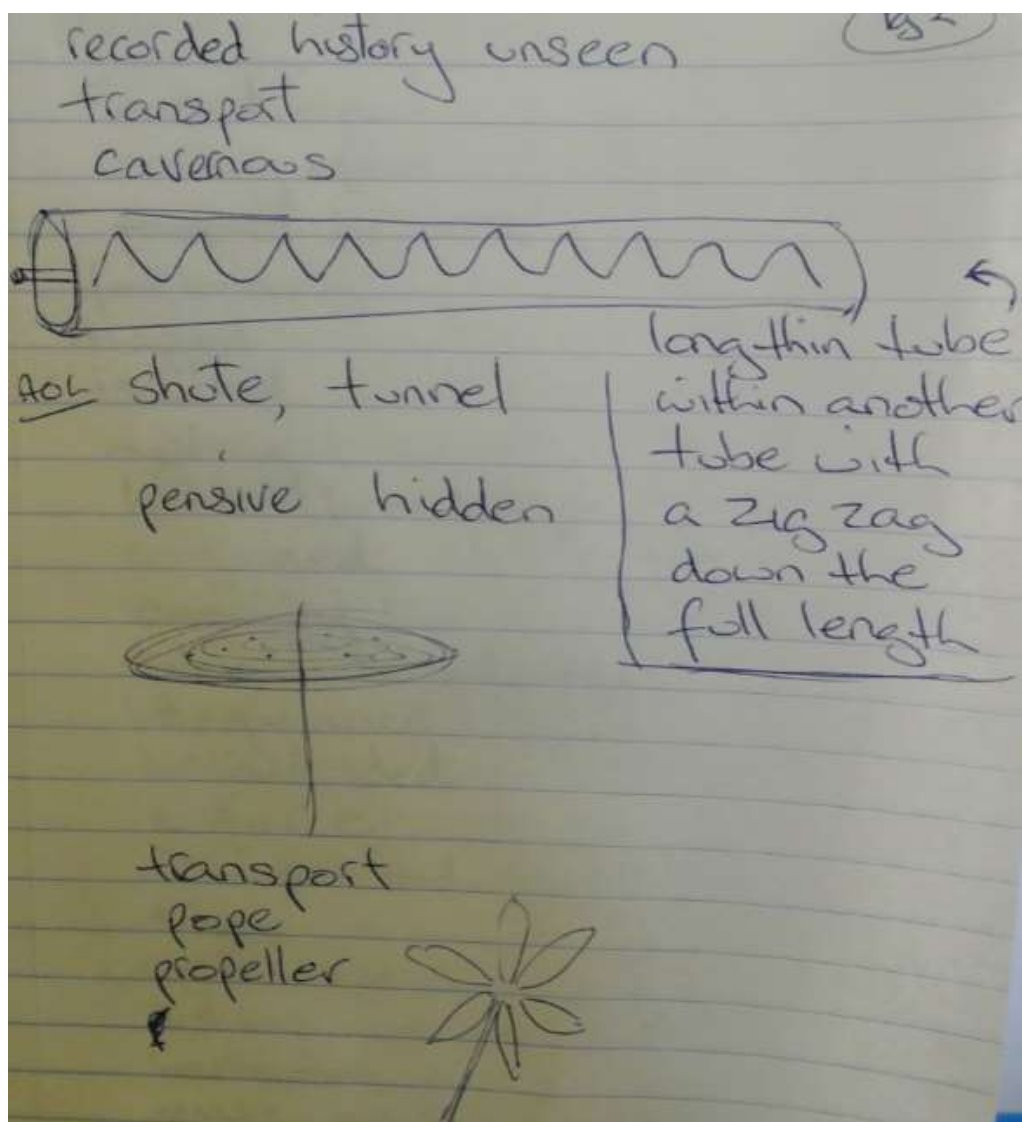 recorded history unseen
transport
cavernous
AOL shute, tunnel
pensive hidden
long thin tube
within another
tube with
a zig zag
down the
full length
transport
pope
propeller